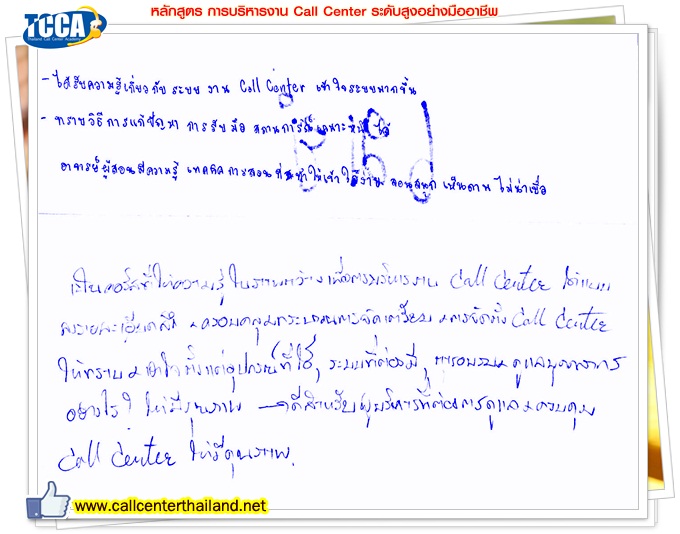 หลักสูตร การบริหารงาน Call Center ระดับสูงอย่างมืออาชีพ
TCCA
Thailand Call Center Academy
- ได้รับความรู้เกี่ยวกับ ระบบ งาน Call Center เข้าใจระบบมากขึ้น
- ทราบวิธีการแก้ปัญหา การรับมือ สถานการณ์เฉพาะหน้าได้
อาจารย์ผู้สอนมีความรู้ เทคนิคการสอนที่ทำให้เข้าใจง่าย สอนสนุก เห็นภาพ ไม่น่าเบื่อ
เป็นคอร์สที่ให้ความรู้ในภาพกว้างเพื่อการบริหารงาน Call Center ได้แบบ
ลงรายละเอียดลึก ครอบคลุมกระบวนการจัดเตรียม การจัดตั้ง Call Center
ให้ทราบ เข้าใจ ตั้งแต่อุปกรณ์ที่ใช้, ระบบที่ต้องมี, การอบรม ดูแลบุคลากร
อย่างไร? ให้มีคุณภาพ ดีสำหรับผู้บริหารที่ต้องการดูแล ควบคุม
Call Center ให้มีคุณภาพ.
www.callcenterthailand.net